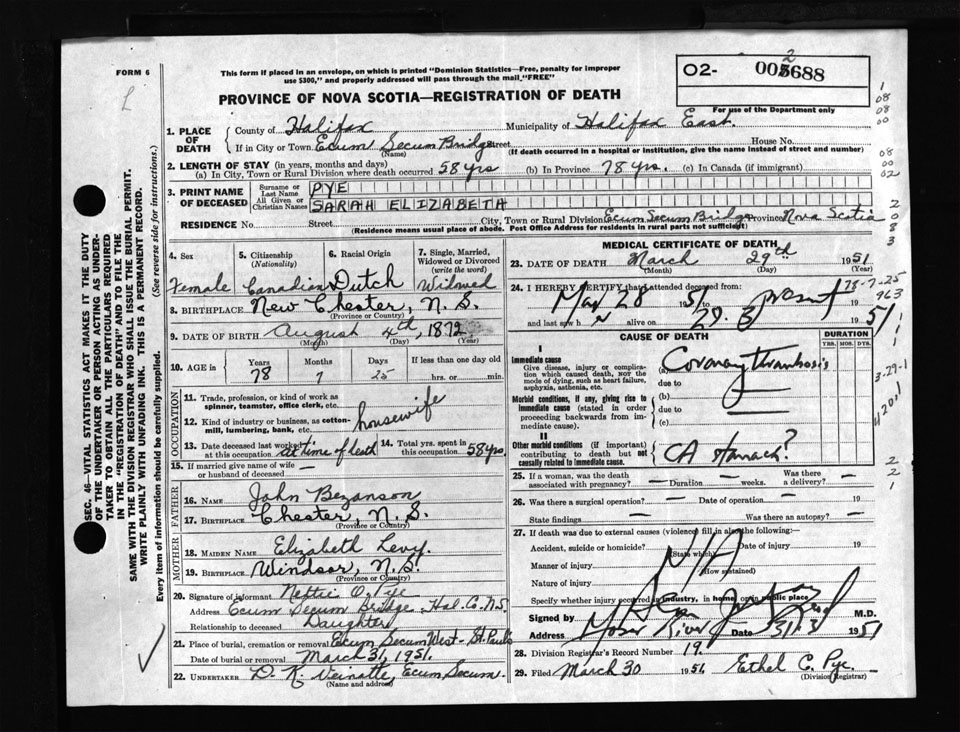 FORM 6
This form if placed in an envelope, on which is printed "Dominion Statistics—Free, penalty for improper
use $300," and properly addressed will pass through the mail "FREE"
PROVINCE OF NOVA SCOTIA—REGISTRATION OF DEATH
02- 005688
2
For use of the Department only
L
1. PLACE OF DEATH { County of Halifax Municipality of Halifax East.
If in City or Town Ecum Secum Bridge Street House No.
(Name) (If death occurred in a hospital or institution, give the name instead of street and number)
2. LENGTH OF STAY (in years, months and days)
(a) In City, Town or Rural Division where death occurred 58 yrs (b) In Province 78 yrs. (c) In Canada (if immigrant)
3. PRINT NAME OF DECEASED { Surname or Last Name PYE
All Given or Christian Names SARAH ELIZABETH
RESIDENCE No. Street City, Town or Rural Division Ecum Secum Bridge Province Nova Scotia
(Residence means usual place of abode. Post Office Address for residents in rural parts not sufficient)
4. Sex 5. Citizenship (Nationality) 6. Racial Origin 7. Single, Married, Widowed or Divorced (write the word)
Female Canadian Dutch Widowed
8. BIRTHPLACE New Chester, N.S.
(Province or Country)
9. DATE OF BIRTH August 4th, 1872
(Month) (Day) (Year)
10. AGE in { Years Months Days If less than one day old
78 7 25 hrs. or min.
OCCUPATION
11. Trade, profession, or kind of work as spinner, teamster, office clerk, etc.
12. Kind of industry or business, as cotton-mill, lumbering, bank, etc. housewife
13. Date deceased last worked at this occupation At time of death 14. Total yrs. spent in this occupation 58 yrs.
15. If married give name of wife or husband of deceased —
FATHER
16. NAME John Bezanson
17. BIRTHPLACE Chester, N.S.
(Province or Country)
MOTHER
18. MAIDEN NAME Elizabeth Levy.
19. BIRTHPLACE Windsor, N.S.
(Province or Country)
20. Signature of informant Neftie O. Pye
Address Ecum Secum Bridge, Hal. Co. N.S.
Relationship to deceased Daughter
21. Place of burial, cremation or removal Ecum Secum West - St. Paul's
Date of burial or removal March 31, 1951.
22. UNDERTAKER D. K. Ecum Secum
(Name and address)
MEDICAL CERTIFICATE OF DEATH
23. DATE OF DEATH March 29th 1951
(Month) (Day) (Year)
24. I HEREBY CERTIFY that I attended deceased from:
May 28 51 to present
and last saw h alive on 29. 3 1951
CAUSE OF DEATH DURATION
YRS. MOS. DYS.
I
Immediate cause
Give disease, injury or complication which caused death, not the mode of dying, such as heart failure, asphyxia, asthenia, etc.
(a) Coronary Thrombosis
due to
Morbid conditions, if any, giving rise to immediate cause (stated in order proceeding backwards from immediate cause).
(b)
due to
(c)
II
Other morbid conditions (if important) contributing to death but not causally related to immediate cause.
CA Stomach?
25. If a woman, was the death associated with pregnancy? — Duration — weeks. Was there a delivery? —
26. Was there a surgical operation? — Date of operation — 19
State findings — Was there an autopsy? —
27. If death was due to external causes (violence) fill in also the following:
Accident, suicide or homicide? Date of injury 19
(State which)
Manner of injury
(How sustained)
N/A
Nature of injury
Specify whether injury occurred in industry, in home, or in public place
Signed by M.D.
Address Moser River Date 31.3 1951
28. Division Registrar's Record Number 19.
29. Filed March 30 1951. Ethel C. Pye.
(Division Registrar)
SEC. 46—VITAL STATISTICS ACT MAKES IT THE DUTY
OF THE UNDERTAKER OR PERSON ACTING AS UNDER-
TAKER TO OBTAIN ALL THE PARTICULARS REQUIRED
IN THE "REGISTRATION OF DEATH" AND TO FILE THE
SAME WITH THE DIVISION REGISTRAR WHO SHALL ISSUE THE BURIAL PERMIT.
WRITE PLAINLY WITH UNFADING INK. THIS IS A PERMANENT RECORD.
Every item of information should be carefully supplied. (See reverse side for instructions.)
1
08
08
00
08
00
02
2
0
8
3
78-7-25
963
1
1
3-29-1
4201
2
2
1